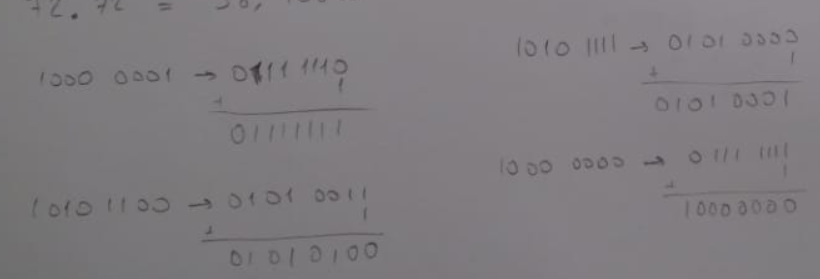 72.72 =
1000 0001 → 0111 1110
+ 1
01111111
1010 1100 → 0101 0011
+ 1
01010100
1010 1111 → 0101 0000
+ 1
01010001
1000 0000 → 0111 1111
+ 1
10000000